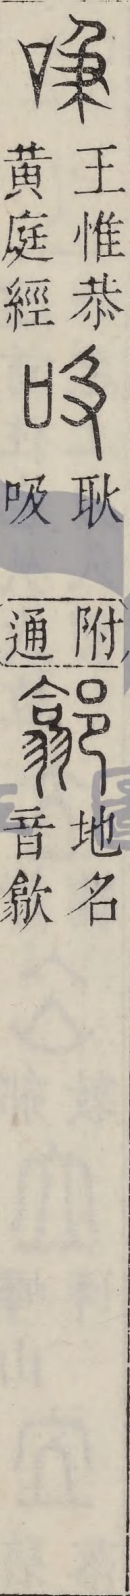 王惟恭
黄庭經
吸
耿
吸
附通
地名
音歙